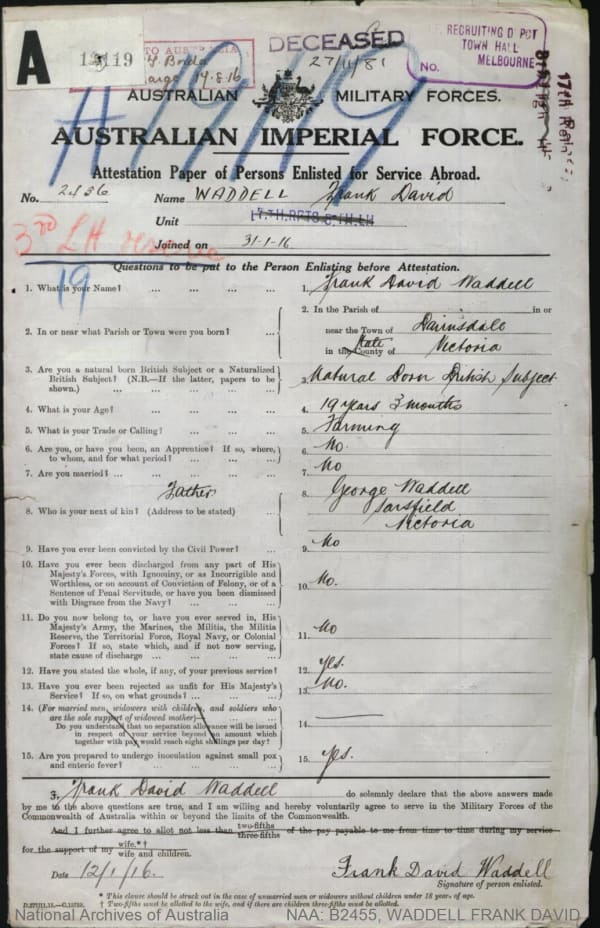 A
12119
TO AUSTRALIA
14.8.16
DECEASED
27/11/81
RECRUITING DEPOT
TOWN HALL
MELBOURNE
No.
17th Reinfs
AUSTRALIAN MILITARY FORCES.
AUSTRALIAN IMPERIAL FORCE.
Attestation Paper of Persons Enlisted for Service Abroad.
No. 2436 Name WADDELL Frank David
Unit 17TH.RFTS 8TH.LH
3RD LH
Joined on 31-1-16
19
Questions to be put to the Person Enlisting before Attestation.
1. What is your Name? ... ... ... ... 1. Frank David Waddell
2. In or near what Parish or Town were you born? ... 2. In the Parish of in or
near the Town of Bairnsdale
in the County of State Victoria
3. Are you a natural born British Subject or a Naturalized
British Subject? (N.B.—If the latter, papers to be
shown.) ... ... ... ... 3. Natural Born British Subject
4. What is your Age? ... ... ... ... 4. 19 years 3 months
5. What is your Trade or Calling? ... ... ... 5. Farming
6. Are you, or have you been, an Apprentice? If so, where,
to whom, and for what period? ... ... ... 6. No.
7. Are you married? ... ... ... ... 7. No
Father
8. Who is your next of kin? (Address to be stated) ... 8. George Waddell
Sarsfield
Victoria
9. Have you ever been convicted by the Civil Power? ... 9. No
10. Have you ever been discharged from any part of His
Majesty's Forces, with Ignominy, or as Incorrigible and
Worthless, or on account of Conviction of Felony, or of a
Sentence of Penal Servitude, or have you been dismissed
with Disgrace from the Navy? ... ... ... 10. No.
11. Do you now belong to, or have you ever served in, His
Majesty's Army, the Marines, the Militia, the Militia
Reserve, the Territorial Force, Royal Navy, or Colonial
Forces? If so, state which, and if not now serving,
state cause of discharge ... ... ... 11. No
12. Have you stated the whole, if any, of your previous service? 12. Yes.
13. Have you ever been rejected as unfit for His Majesty's
Service? If so, on what grounds? ... ... ... 13. No.
14. (For married men, widowers with children, and soldiers who
are the sole support of widowed mother)—
Do you understand that no separation allowance will be issued
in respect of your service beyond an amount which
together with pay would reach eight shillings per day? 14. ——
15. Are you prepared to undergo inoculation against small pox
and enteric fever? ... ... ... ... 15. Yes.
I, Frank David Waddell do solemnly declare that the above answers made
by me to the above questions are true, and I am willing and hereby voluntarily agree to serve in the Military Forces of the
Commonwealth of Australia within or beyond the limits of the Commonwealth.
And I further agree to allot not less than two-fifths three-fifths of the pay payable to me from time to time during my service
for the support of my wife.*† wife and children.
Date 12/1/16. Frank David Waddell
Signature of person enlisted.
* This clause should be struck out in the case of unmarried men or widowers without children under 18 years of age.
† Two-fifths must be allotted to the wife, and if there are children three-fifths must be allotted.
National Archives of Australia NAA: B2455, WADDELL FRANK DAVID